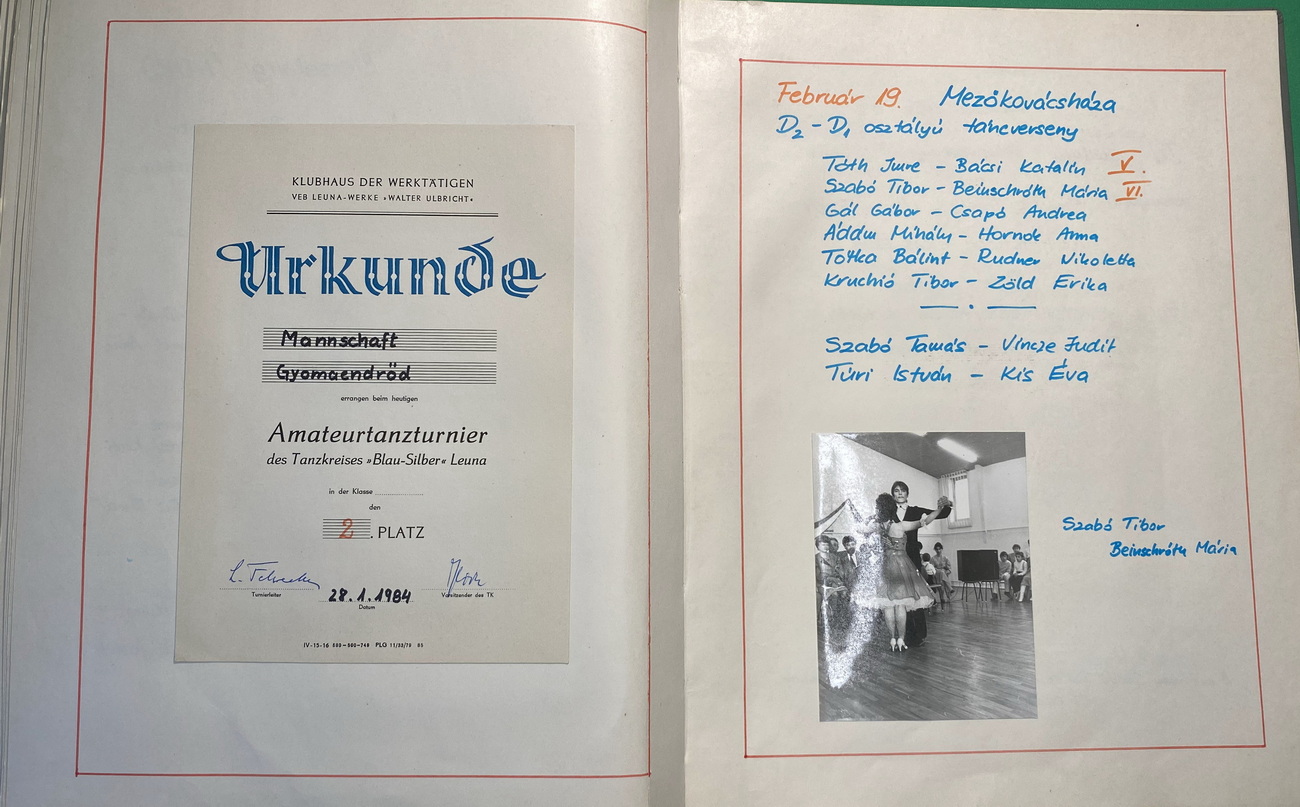 KLUBHAUS DER WERKTÄTIGEN
VEB LEUNA-WERKE »WALTER ULBRICHT«
Urkunde
Mannschaft
Gyomaendröd
errangen beim heutigen
Amateurtanzturnier
des Tanzkreises »Blau-Silber« Leuna
in der Klasse
den
2. PLATZ
Turnierleiter
28.1.1984
Datum
Vorsitzender des TK
IV-15-16
Február 19. Mezőkovácsháza
D2 - D1 osztályú táncverseny
Tóth Imre - Bácsi Katalin V.
Szabó Tibor - Beinschróth Mária VI.
Gál Gábor - Csapó Andrea
Mihály - Hornok Anna
Bálint - Rudner Nikoletta
Kruchió Tibor - Zöld Erika
Szabó Tamás - Vincze Judit
Túri István - Kis Éva
Szabó Tibor
Beinschróth Mária